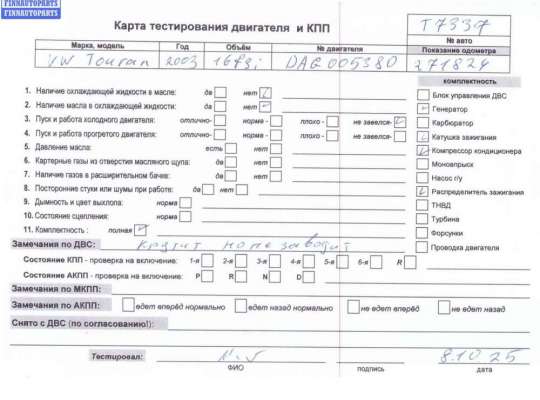 FINNAUTOPARTS
FINNAUTOPARTS
Карта тестирования двигателя и КПП
T7337
№ авто
Марка, модель Год Объём № двигателя Показание одометра
VW Touran 2003 1.6 fsi BAG 005380 271824
комплектность
1. Наличие охлаждающей жидкости в масле: да нет
2. Наличие масла в охлаждающей жидкости: да нет
3. Пуск и работа холодного двигателя: отлично- норма - плохо - не завелся-
4. Пуск и работа прогретого двигателя: отлично- норма - плохо - не завелся-
5. Давление масла: есть нет
6. Картерные газы из отверстия масляного щупа: да нет
7. Наличие газов в расширительном бачке: да нет
8. Посторонние стуки или шумы при работе: да нет
9. Дымность и цвет выхлопа: норма
10. Состояние сцепления: норма
11. Комплектность : полная
Блок управления ДВС
Генератор
Карбюратор
Катушка зажигания
Компрессор кондиционера
Моновпрыск
Насос г/у
Распределитель зажигания
ТНВД
Турбина
Форсунки
Проводка двигателя
Замечания по ДВС: крутит не заводит
Состояние КПП - проверка на включение: 1-я 2-я 3-я 4-я 5-я 6-я R
Состояние АКПП - проверка на включение: P R N D
Замечания по МКПП:
Замечания по АКПП: едет вперёд нормально едет назад нормально не едет вперёд не едет назад
Снято с ДВС (по согласованию!):
Тестировал: 8.10.25
ФИО подпись дата